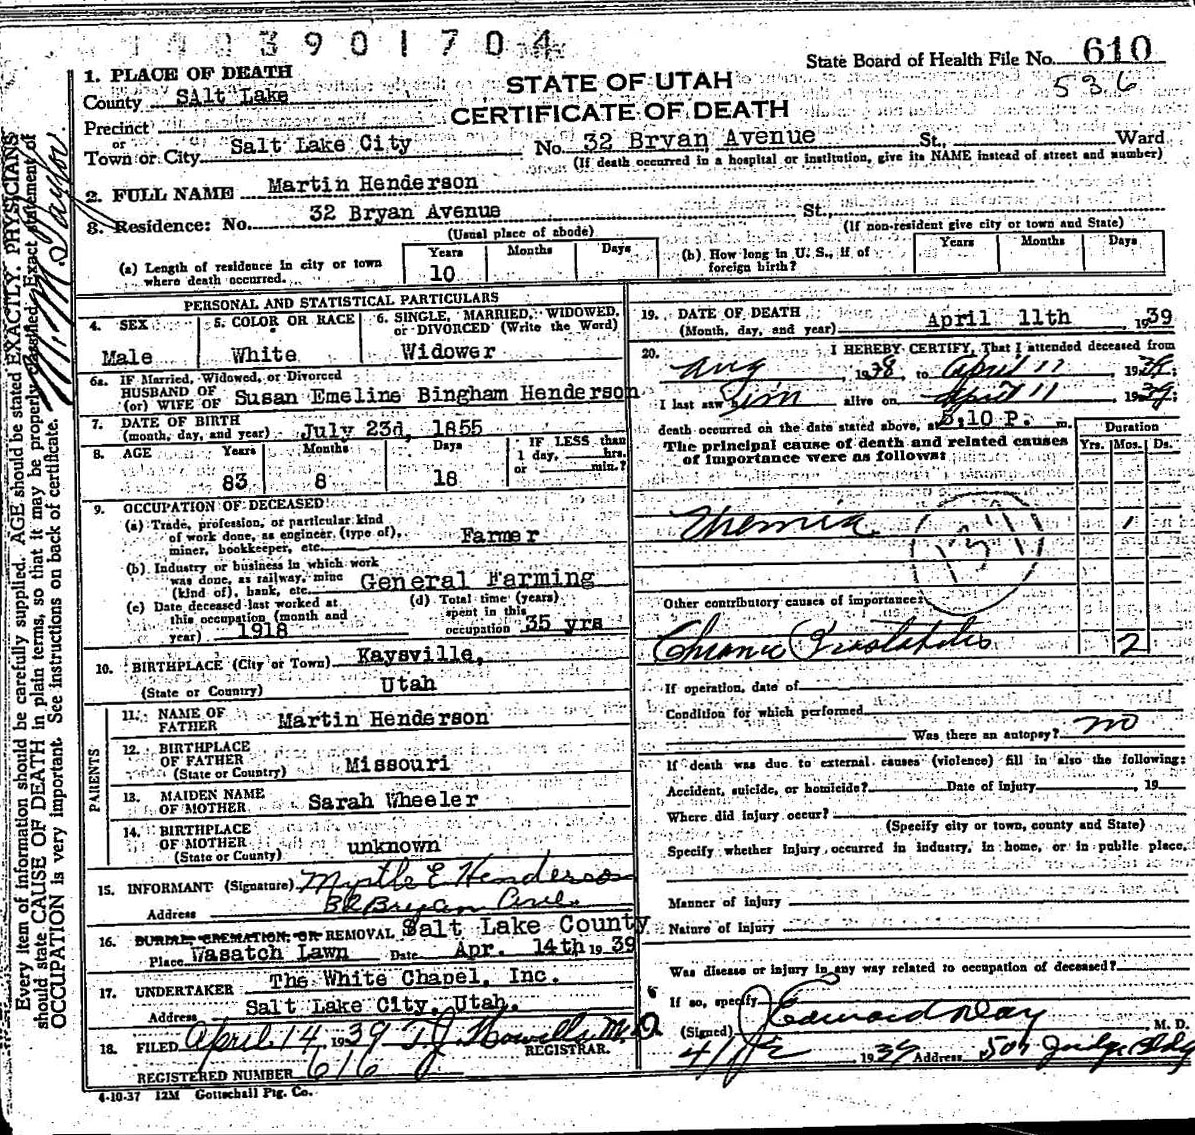 1003901704
State Board of Health File No. 610
536
1. PLACE OF DEATH
STATE OF UTAH
CERTIFICATE OF DEATH
County SAlt Lake
Precinct
or
Town or City Salt Lake City No. 32 Bryan Avenue St., Ward
(If death occurred in a hospital or institution, give its NAME instead of street and number)
2. FULL NAME Martin Henderson
3. Residence: No. 32 Bryan Avenue St.,
(Usual place of abode) (If non-resident give city or town and State)
(a) Length of residence in city or town where death occurred. Years 10 Months Days
(b) How long in U. S., if of foreign birth? Years Months Days
PERSONAL AND STATISTICAL PARTICULARS
4. SEX Male
5. COLOR OR RACE White
6. SINGLE, MARRIED, WIDOWED, or DIVORCED (Write the Word) Widower
6a. IF Married, Widowed, or Divorced
HUSBAND OF
(or) WIFE OF Susan Emeline Bingham Henderson
7. DATE OF BIRTH
(month, day, and year) July 23d, 1855
8. AGE Years 83 Months 8 Days 18 IF LESS than 1 day, hrs. or min.?
9. OCCUPATION OF DECEASED:
(a) Trade, profession, or particular kind
of work done, as engineer, (type of),
miner, bookkeeper, etc. Farmer
(b) Industry or business in which work
was done, as railway, mine
(kind of), bank, etc. General Farming
(c) Date deceased last worked at
this occupation (month and
year) 1918
(d) Total time (years)
spent in this
occupation 35 yrs
10. BIRTHPLACE (City or Town) Kaysville,
(State or Country) Utah
PARENTS
11. NAME OF
FATHER Martin Henderson
12. BIRTHPLACE
OF FATHER
(State or Country) Missouri
13. MAIDEN NAME
OF MOTHER Sarah Wheeler
14. BIRTHPLACE
OF MOTHER
(State or County) unknown
15. INFORMANT (Signature) Myrtle E Henderson
Address 32 Bryan Ave.
16. BURIAL, CREMATION, OR REMOVAL Salt Lake County
Place Wasatch Lawn Date Apr. 14th 1939
17. UNDERTAKER The White Chapel, Inc.
Address Salt Lake City, Utah.
18. FILED April 14, 1939 T. J. Howells M.D.
REGISTRAR.
REGISTERED NUMBER 616
4-10-37 12M Gottschall Ptg. Co.
19. DATE OF DEATH
(Month, day, and year) April 11th 1939
20. I HEREBY CERTIFY, That I attended deceased from
Aug 1938, to April 11 1939;
I last saw him alive on April 11 1939;
death occurred on the date stated above, at 5:10 P. m.
The principal cause of death and related causes
of importance were as follows:
Duration
Yrs. Mos. Ds.
Uremia 1
Other contributory causes of importance:
Chronic Prostatitis 2
If operation, date of
Condition for which performed
Was there an autopsy? no
If death was due to external causes (violence) fill in also the following:
Accident, suicide, or homicide? Date of Injury , 19
Where did injury occur?
(Specify city or town, county and State)
Specify whether injury occurred in industry, in home, or in public place.
Manner of injury
Nature of Injury
Was disease or injury in any way related to occupation of deceased?
If so, specify
(Signed) J Edward Day M. D.
1939 Address 507 Judge Bldg
Every item of information should be carefully supplied. AGE should be stated EXACTLY. PHYSICIANS
should state CAUSE OF DEATH in plain terms, so that it may be properly classified. Exact statement of
OCCUPATION is very important. See instructions on back of certificate.